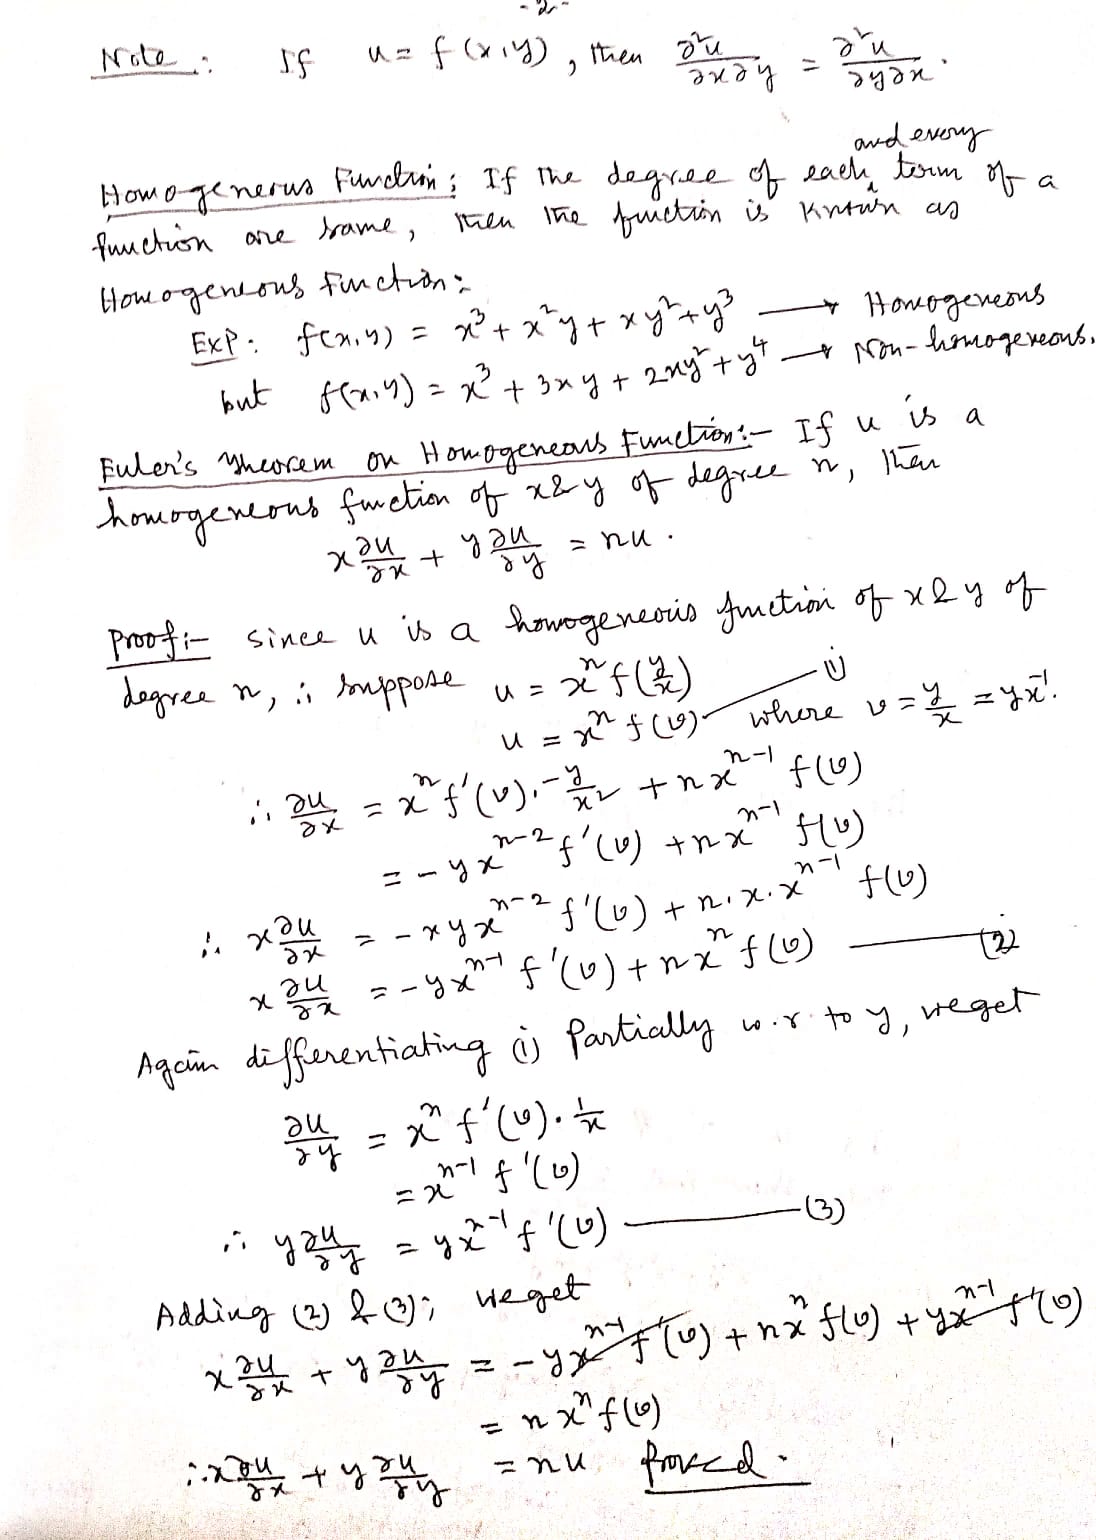 - 2 -
Note : If u = f(x,y), then ∂²u/∂x∂y = ∂²u/∂y∂x.
Homo-generus Function : If the degree of each and every term of a
function are same, then the function is known as
Homogeneous Function :
Exp : f(x,y) = x³ + x²y + xy² + y³ ⟶ Homogeneous
but f(x,y) = x³ + 3xy + 2xy² + y⁴ ⟶ Non-homogeneous.
Euler's Theorem on Homogeneous Function :- If u is a
homogeneous function of x & y of degree n, then
x ∂u/∂x + y ∂u/∂y = nu .
Proof :- Since u is a homogeneous function of x & y of
degree n, ∴ suppose u = xⁿ f(y/x)
u = xⁿ f(v) — (1) where v = y/x = yx⁻¹.
∴ ∂u/∂x = xⁿ f'(v) . -y/x² + n xⁿ⁻¹ f(v)
= - y xⁿ⁻² f'(v) + n xⁿ⁻¹ f(v)
∴ x ∂u/∂x = - x y xⁿ⁻² f'(v) + n . x . xⁿ⁻¹ f(v)
x ∂u/∂x = - y xⁿ⁻¹ f'(v) + n xⁿ f(v) — (2)
Again differentiating (1) Partially w.r. to y, we get
∂u/∂y = xⁿ f'(v) . 1/x
= xⁿ⁻¹ f'(v)
∴ y ∂u/∂y = y xⁿ⁻¹ f'(v) — (3)
Adding (2) & (3), we get
x ∂u/∂x + y ∂u/∂y = - y xⁿ⁻¹ f'(v) + n xⁿ f(v) + y xⁿ⁻¹ f'(v)
= n xⁿ f(v)
∴ x ∂u/∂x + y ∂u/∂y = nu proved .